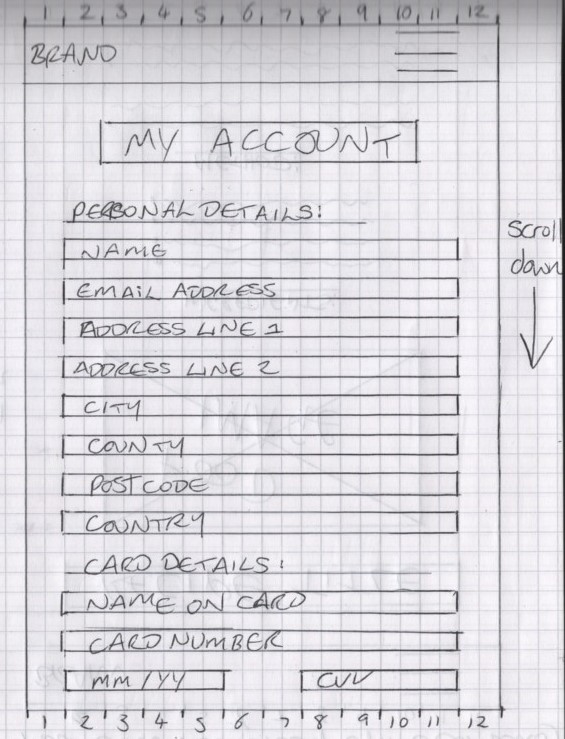 1 2 3 4 5 6 7 8 9 10 11 12
BRAND
MY ACCOUNT
PERSONAL DETAILS:
scroll
down
NAME
EMAIL ADDRESS
ADDRESS LINE 1
ADDRESS LINE 2
CITY
COUNTY
POSTCODE
COUNTRY
CARD DETAILS:
NAME ON CARD
CARD NUMBER
mm/YY CVV
1 2 3 4 5 6 7 8 9 10 11 12